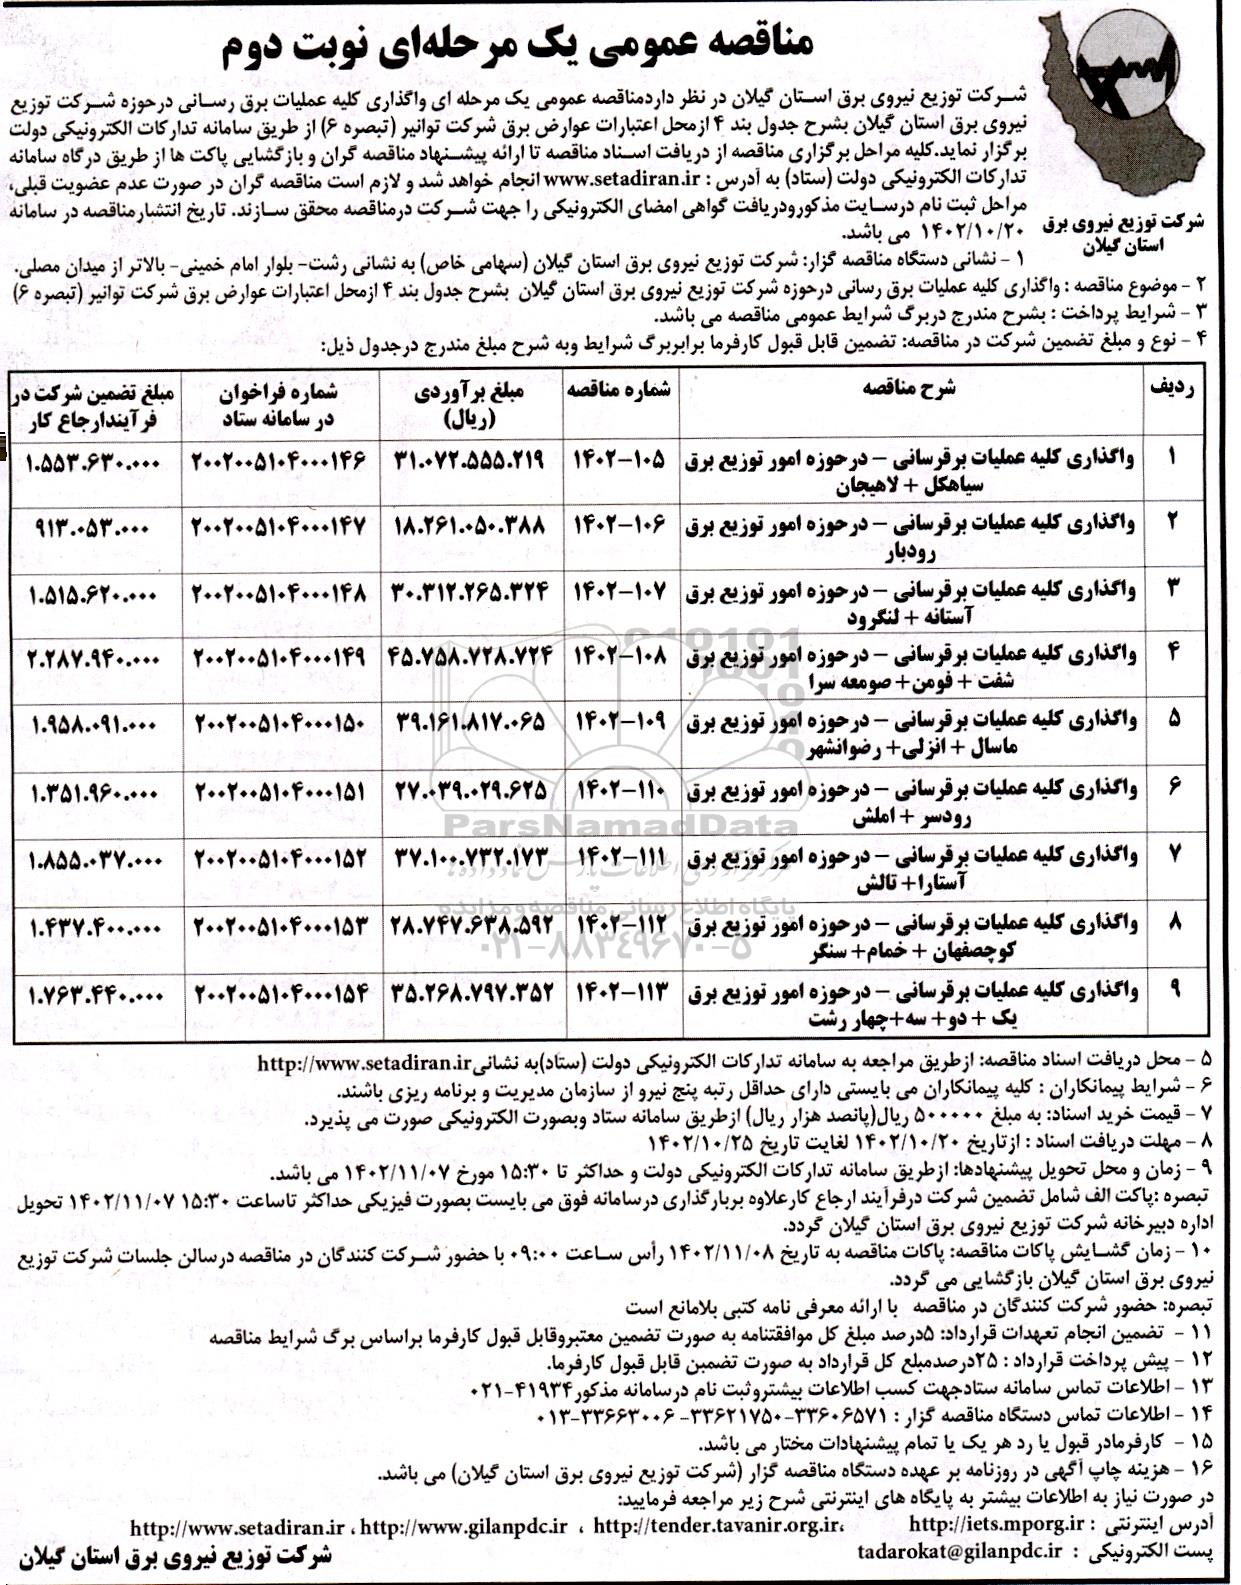 مناقصه عمومی یک مرحله‌ای نوبت دوم
شرکت توزیع نیروی برق
استان گیلان
شرکت توزیع نیروی برق استان گیلان در نظر داردمناقصه عمومی یک مرحله ای واگذاری کلیه عملیات برق رسانی درحوزه شرکت توزیع
نیروی برق استان گیلان بشرح جدول بند ۴ ازمحل اعتبارات عوارض برق شرکت توانیر (تبصره ۶) از طریق سامانه تدارکات الکترونیکی دولت
برگزار نماید.کلیه مراحل برگزاری مناقصه از دریافت اسناد مناقصه تا ارائه پیشنهاد مناقصه گران و بازگشایی پاکت ها از طریق درگاه سامانه
تدارکات الکترونیکی دولت (ستاد) به آدرس : www.setadiran.ir انجام خواهد شد و لازم است مناقصه گران در صورت عدم عضویت قبلی،
مراحل ثبت نام درسایت مذکورودریافت گواهی امضای الکترونیکی را جهت شرکت درمناقصه محقق سازند. تاریخ انتشارمناقصه در سامانه
۱۴۰۲/۱۰/۲۰ می باشد.
۱ - نشانی دستگاه مناقصه گزار: شرکت توزیع نیروی برق استان گیلان (سهامی خاص) به نشانی رشت- بلوار امام خمینی- بالاتر از میدان مصلی.
۲ - موضوع مناقصه : واگذاری کلیه عملیات برق رسانی درحوزه شرکت توزیع نیروی برق استان گیلان بشرح جدول بند ۴ ازمحل اعتبارات عوارض برق شرکت توانیر (تبصره ۶)
۳ - شرایط پرداخت : بشرح مندرج دربرگ شرایط عمومی مناقصه می باشد.
۴ - نوع و مبلغ تضمین شرکت در مناقصه: تضمین قابل قبول کارفرما برابربرگ شرایط وبه شرح مبلغ مندرج درجدول ذیل:
ردیف شرح مناقصه شماره مناقصه مبلغ برآوردی (ریال) شماره فراخوان در سامانه ستاد مبلغ تضمین شرکت در فرآیندارجاع کار
۱ واگذاری کلیه عملیات برقرسانی – درحوزه امور توزیع برق سیاهکل + لاهیجان ۱۴۰۲-۱۰۵ ۳۱.۰۷۲.۵۵۵.۲۱۹ ۲۰۰۲۰۰۵۱۰۴۰۰۰۱۴۶ ۱.۵۵۳.۶۳۰.۰۰۰
۲ واگذاری کلیه عملیات برقرسانی – درحوزه امور توزیع برق رودبار ۱۴۰۲-۱۰۶ ۱۸.۲۶۱.۰۵۰.۳۸۸ ۲۰۰۲۰۰۵۱۰۴۰۰۰۱۴۷ ۹۱۳.۰۵۳.۰۰۰
۳ واگذاری کلیه عملیات برقرسانی – درحوزه امور توزیع برق آستانه + لنگرود ۱۴۰۲-۱۰۷ ۳۰.۳۱۲.۲۶۵.۳۲۴ ۲۰۰۲۰۰۵۱۰۴۰۰۰۱۴۸ ۱.۵۱۵.۶۲۰.۰۰۰
۴ واگذاری کلیه عملیات برقرسانی – درحوزه امور توزیع برق شفت + فومن+ صومعه سرا ۱۴۰۲-۱۰۸ ۴۵.۷۵۸.۷۲۸.۷۲۴ ۲۰۰۲۰۰۵۱۰۴۰۰۰۱۴۹ ۲.۲۸۷.۹۴۰.۰۰۰
۵ واگذاری کلیه عملیات برقرسانی – درحوزه امور توزیع برق ماسال + انزلی+ رضوانشهر ۱۴۰۲-۱۰۹ ۳۹.۱۶۱.۸۱۷.۰۶۵ ۲۰۰۲۰۰۵۱۰۴۰۰۰۱۵۰ ۱.۹۵۸.۰۹۱.۰۰۰
۶ واگذاری کلیه عملیات برقرسانی – درحوزه امور توزیع برق رودسر + املش ۱۴۰۲-۱۱۰ ۲۷.۰۳۹.۰۲۹.۶۲۵ ۲۰۰۲۰۰۵۱۰۴۰۰۰۱۵۱ ۱.۳۵۱.۹۶۰.۰۰۰
۷ واگذاری کلیه عملیات برقرسانی – درحوزه امور توزیع برق آستارا+ تالش ۱۴۰۲-۱۱۱ ۳۷.۱۰۰.۷۳۲.۱۷۳ ۲۰۰۲۰۰۵۱۰۴۰۰۰۱۵۲ ۱.۸۵۵.۰۳۷.۰۰۰
۸ واگذاری کلیه عملیات برقرسانی – درحوزه امور توزیع برق کوچصفهان + خمام+ سنگر ۱۴۰۲-۱۱۲ ۲۸.۷۴۷.۶۳۸.۵۹۲ ۲۰۰۲۰۰۵۱۰۴۰۰۰۱۵۳ ۱.۴۳۷.۴۰۰.۰۰۰
۹ واگذاری کلیه عملیات برقرسانی – درحوزه امور توزیع برق یک + دو+ سه+چهار رشت ۱۴۰۲-۱۱۳ ۳۵.۲۶۸.۷۹۷.۳۵۲ ۲۰۰۲۰۰۵۱۰۴۰۰۰۱۵۴ ۱.۷۶۳.۴۴۰.۰۰۰
ParsNamadData
پایگاه اطلاع رسانی مناقصه و مزایده
۰۲۱-۸۸۳۴۹۶۷۰-۵
۵ - محل دریافت اسناد مناقصه: ازطریق مراجعه به سامانه تدارکات الکترونیکی دولت (ستاد)به نشانیhttp://www.setadiran.ir
۶ - شرایط پیمانکاران : کلیه پیمانکاران می بایستی دارای حداقل رتبه پنج نیرو از سازمان مدیریت و برنامه ریزی باشند.
۷ - قیمت خرید اسناد: به مبلغ ۵۰۰۰۰۰ ریال(پانصد هزار ریال) ازطریق سامانه ستاد وبصورت الکترونیکی صورت می پذیرد.
۸ - مهلت دریافت اسناد : ازتاریخ ۱۴۰۲/۱۰/۲۰ لغایت تاریخ ۱۴۰۲/۱۰/۲۵
۹ - زمان و محل تحویل پیشنهادها: ازطریق سامانه تدارکات الکترونیکی دولت و حداکثر تا ۱۵:۳۰ مورخ ۱۴۰۲/۱۱/۰۷ می باشد.
تبصره :پاکت الف شامل تضمین شرکت درفرآیند ارجاع کارعلاوه بربارگذاری درسامانه فوق می بایست بصورت فیزیکی حداکثر تاساعت ۱۵:۳۰ ۱۴۰۲/۱۱/۰۷ تحویل
اداره دبیرخانه شرکت توزیع نیروی برق استان گیلان گردد.
۱۰ - زمان گشایش پاکات مناقصه: پاکات مناقصه به تاریخ ۱۴۰۲/۱۱/۰۸ رأس ساعت ۰۹:۰۰ با حضور شرکت کنندگان در مناقصه درسالن جلسات شرکت توزیع
نیروی برق استان گیلان بازگشایی می گردد.
تبصره: حضور شرکت کنندگان در مناقصه با ارائه معرفی نامه کتبی بلامانع است
۱۱ - تضمین انجام تعهدات قرارداد: ۵درصد مبلغ کل موافقتنامه به صورت تضمین معتبروقابل قبول کارفرما براساس برگ شرایط مناقصه
۱۲ - پیش پرداخت قرارداد : ۲۵درصدمبلغ کل قرارداد به صورت تضمین قابل قبول کارفرما.
۱۳ - اطلاعات تماس سامانه ستادجهت کسب اطلاعات بیشتروثبت نام درسامانه مذکور۴۱۹۳۴-۰۲۱
۱۴ - اطلاعات تماس دستگاه مناقصه گزار : ۳۳۶۰۶۵۷۱-۳۳۶۲۱۷۵۰- ۳۳۶۶۳۰۰۶-۰۱۳
۱۵ - کارفرمادر قبول یا رد هر یک یا تمام پیشنهادات مختار می باشد.
۱۶ - هزینه چاپ آگهی در روزنامه بر عهده دستگاه مناقصه گزار (شرکت توزیع نیروی برق استان گیلان) می باشد.
در صورت نیاز به اطلاعات بیشتر به پایگاه های اینترنتی شرح زیر مراجعه فرمایید:
آدرس اینترنتی : http://iets.mporg.ir ،http://tender.tavanir.org.ir ، http://www.gilanpdc.ir ، http://www.setadiran.ir
پست الکترونیکی : tadarokat@gilanpdc.ir
شرکت توزیع نیروی برق استان گیلان